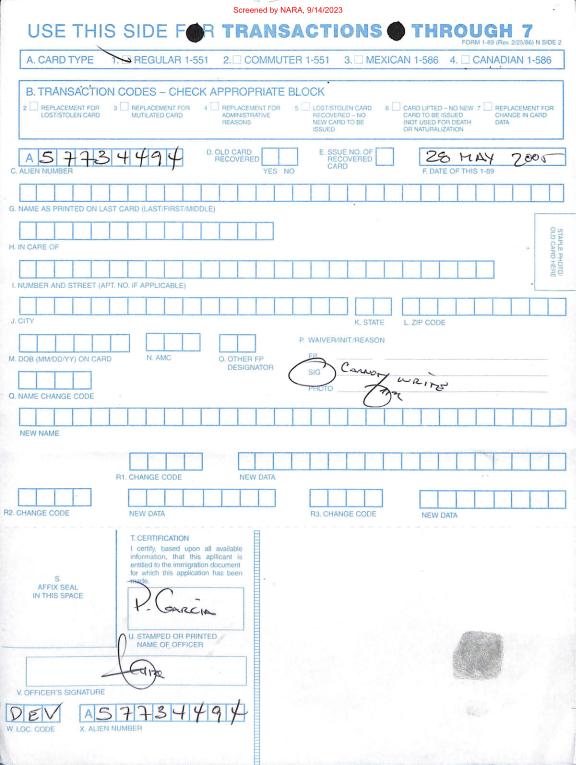 Screened by NARA, 9/14/2023
USE THIS SIDE FOR TRANSACTIONS THROUGH 7
FORM 1-89 (Rev 2/25/86) N SIDE 2
A. CARD TYPE 1. REGULAR 1-551 2. COMMUTER 1-551 3. MEXICAN 1-586 4. CANADIAN 1-586
B. TRANSACTION CODES – CHECK APPROPRIATE BLOCK
2 REPLACEMENT FOR LOST/STOLEN CARD
3 REPLACEMENT FOR MUTILATED CARD
4 REPLACEMENT FOR ADMINISTRATIVE REASONS
5 LOST/STOLEN CARD RECOVERED – NO NEW CARD TO BE ISSUED
6 CARD LIFTED – NO NEW CARD TO BE ISSUED (NOT USED FOR DEATH OR NATURALIZATION
7 REPLACEMENT FOR CHANGE IN CARD DATA
A 57734494
C. ALIEN NUMBER
D. OLD CARD RECOVERED
YES NO
E. SSUE NO. OF RECOVERED CARD
28 MAY 2005
F. DATE OF THIS 1-89
G. NAME AS PRINTED ON LAST CARD (LAST/FIRST/MIDDLE)
STAPLE PHOTO/
OLD CARD HERE
H. IN CARE OF
I. NUMBER AND STREET (APT. NO. IF APPLICABLE)
J. CITY
K. STATE
L. ZIP CODE
M. DOB (MM/DD/YY) ON CARD
N. AMC
O. OTHER FP DESIGNATOR
P. WAIVER/INIT/REASON
FP
SIG CANNOT WRITE
PHOTO
Q. NAME CHANGE CODE
NEW NAME
R1. CHANGE CODE
NEW DATA
R2. CHANGE CODE
NEW DATA
R3. CHANGE CODE
NEW DATA
S
AFFIX SEAL
IN THIS SPACE
T. CERTIFICATION
I certify, based upon all available
information, that this applicant is
entitled to the immigration document
for which this application has been
made.
P. GARCIA
U. STAMPED OR PRINTED
NAME OF OFFICER
V. OFFICER'S SIGNATURE
DEV
W. LOC. CODE
A 57734494
X. ALIEN NUMBER